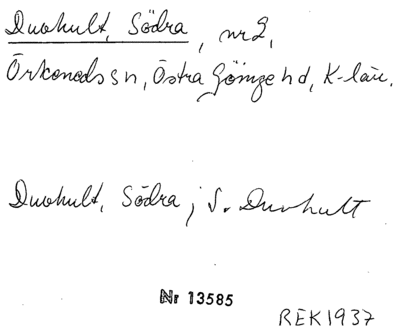 Duvhult, Södra, nr 2,
Örkeneds sn, Östra Göinge hd, K-län.
Duvhult, Södra; S. Duvhult
Nr 13585
REK 1937